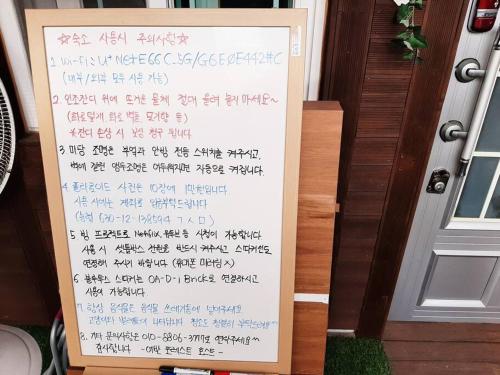 ☆숙소 사용시 주의사항☆
1. Wi-Fi : U⁺Net E66C_5G / G6E0E442#C
(내부/외부 모두 사용 가능)
2. 인조잔디 위에 뜨거운 물체 절대 올려 놓지 마세요~
(화로열기, 화로 뚜껑, 모기향 등)
※잔디 손상 시 보상 청구 됩니다.
3. 마당 조명은 부엌과 안방 전등 스위치를 켜주시고,
벽에 걸린 앵두조명은 어두워지면 자동으로 켜집니다.
4. 폴라로이드 사진은 10장에 1만원입니다
사용 시에는 계좌로 입금부탁드립니다
5. 빔 프로젝트로 Netflix, 유튜브 등 시청이 가능합니다.
사용 시 셋톱박스 전원을 반드시 켜주시고 스피커선도
연결해 주시기 바랍니다 (휴대폰 미러링 X)
6. 블루투스 스피커는 OA-D-i Brick로 연결하시고
사용이 가능합니다.
7. 항상 음식물은 음식물 쓰레기통에 넣어주세요
고양이와 벌레들이 나타납니다 청소도 청결히 부탁드려요^^
8. 기타 문의사항은 010-5806-3777로 연락주세요^^
감사합니다 - 여반 포레스트 호스트 -